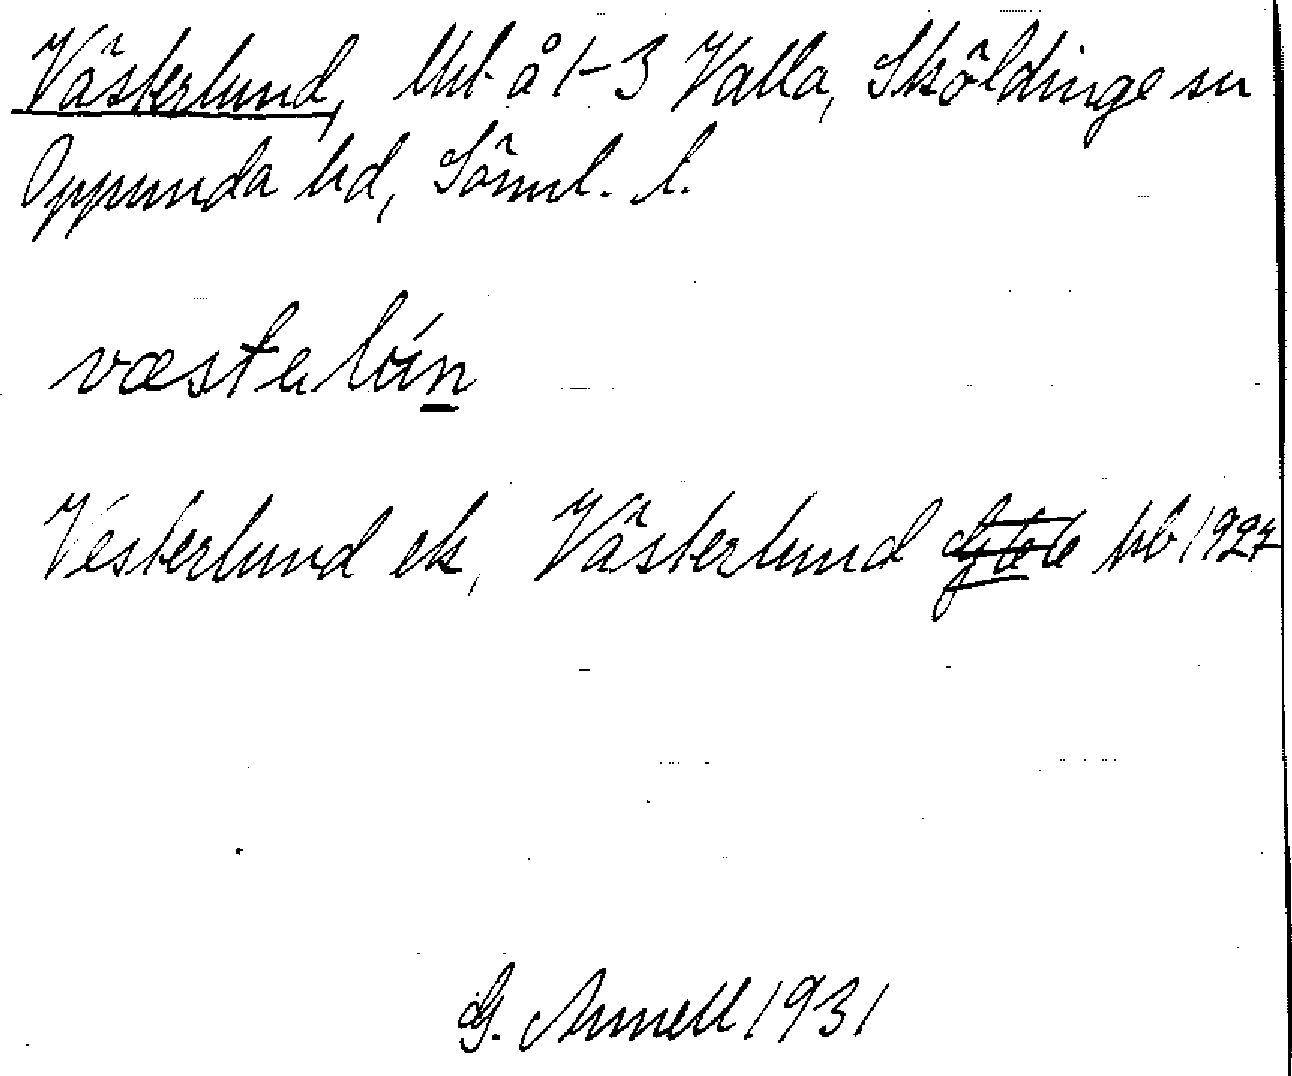 Västerlund, Utb å 1-3 Valla, Sköldinge sn
Oppunda hd, Söml. l.
Vesterlund ek, Västerlund hb 1927
G. Annell 1931